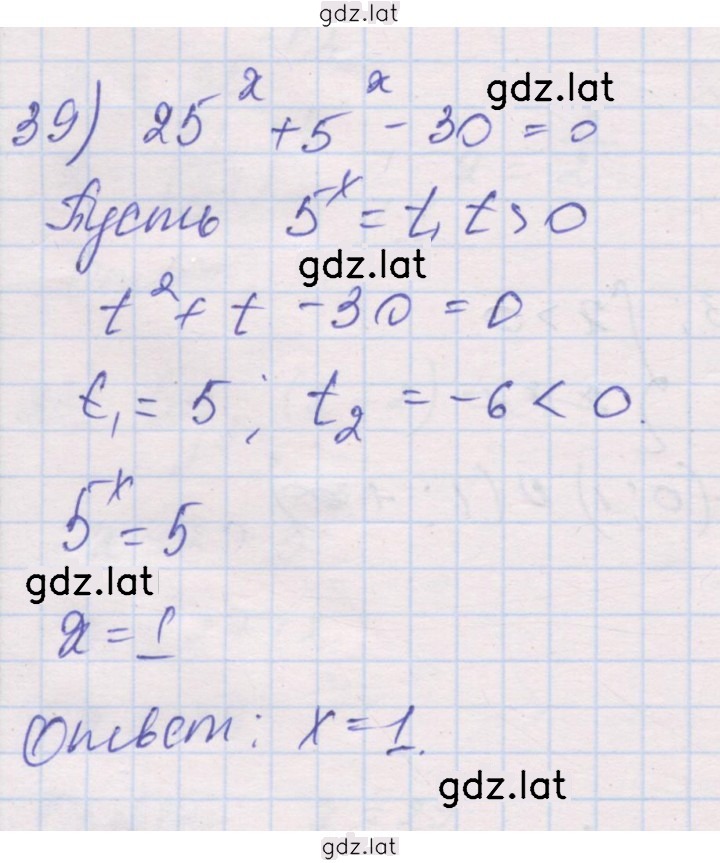 gdz.lat
39) 25^x + 5^x - 30 = 0
gdz.lat
Пусть 5^x = t, t > 0
gdz.lat
t^2 + t - 30 = 0
t_1 = 5; t_2 = -6 < 0.
5^x = 5
gdz.lat
x = 1
Ответ: x = 1.
gdz.lat
gdz.lat